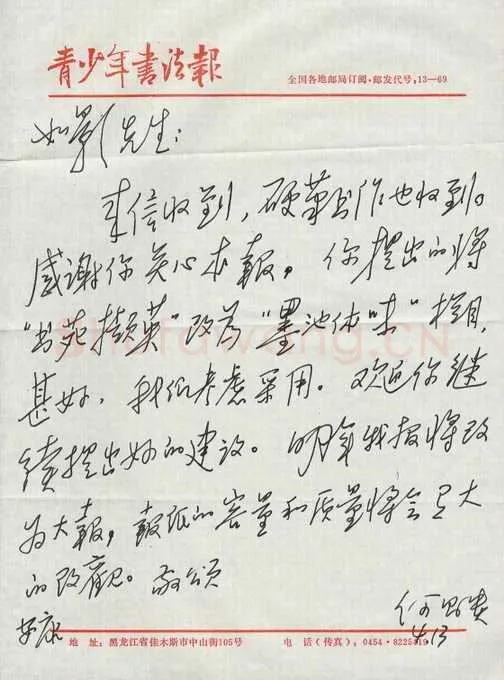 青少年书法報
全国各地邮局订阅·邮发代号,13—69
如影先生:
来信收到,硬笔书作也收到。
感谢你关心本報,你提出的将
“书苑撷英”改为“墨池体味”栏目,
甚好,我们考虑采用。欢迎你继
续提出好的建议。明年我报将改
为大報,報纸的容量和质量将会有大
的改觀。敬颂
安康
何
4.13
地 址:黑龙江省佳木斯市中山街105号 电 话(传真),0454·8225419